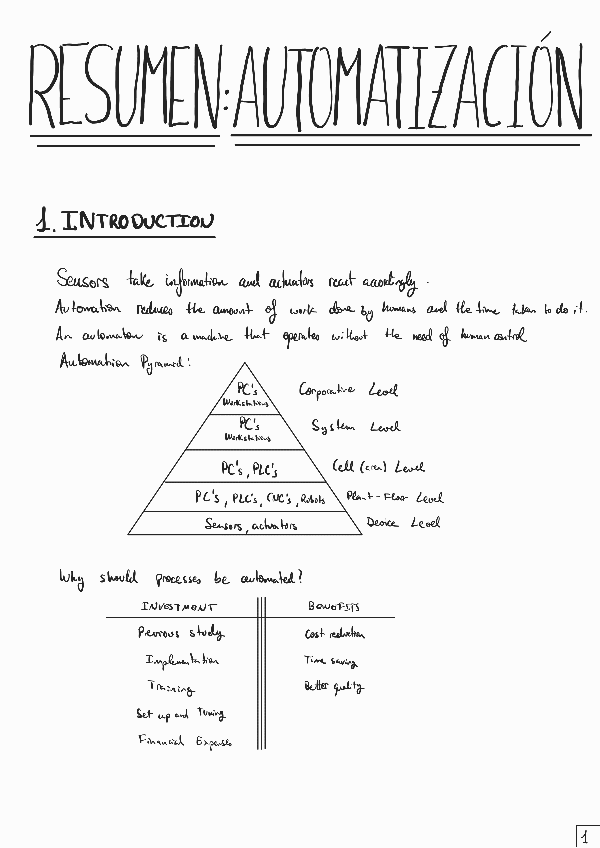 RESUMEN: AUTOMATIZACIÓN
1. INTRODUCTION
Sensors take information and actuators react accordingly.
Automation reduces the amount of work done by humans and the time taken to do it.
An automaton is a machine that operates without the need of human control
Automation Pyramid:
PC's
Workstations
Corporative Level
PC's
Workstations
System Level
PC's, PLC's
Cell (area) Level
PC's, PLC's, CNC's, Robots
Plant-Floor Level
Sensors, actuators
Device Level
Why should processes be automated?
INVESTMENT
BENEFITS
Previous study
Cost reduction
Implementation
Time saving
Training
Better quality
Set up and Tuning
Financial Expenses
1